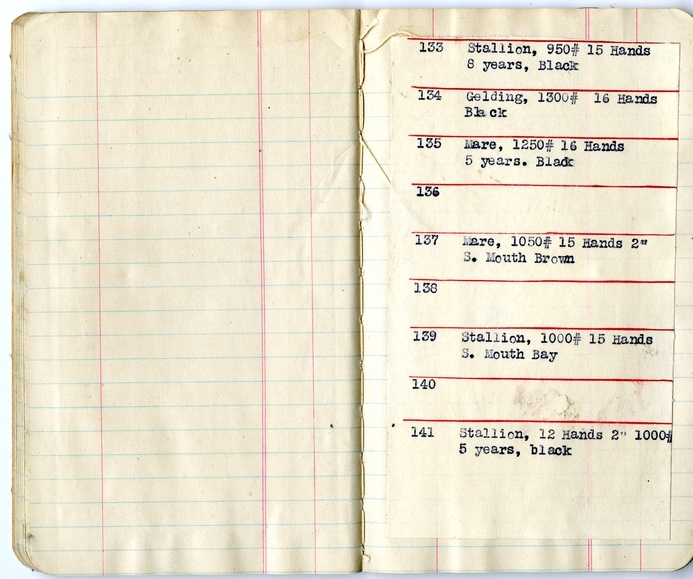 133 Stallion, 950# 15 Hands
8 years, Black
134 Gelding, 1300# 16 Hands
Black
135 Mare, 1250# 16 Hands
5 years. Black
136
137 Mare, 1050# 15 Hands 2"
S. Mouth Brown
138
139 Stallion, 1000# 15 Hands
S. Mouth Bay
140
141 Stallion, 12 Hands 2" 1000#
5 years, black